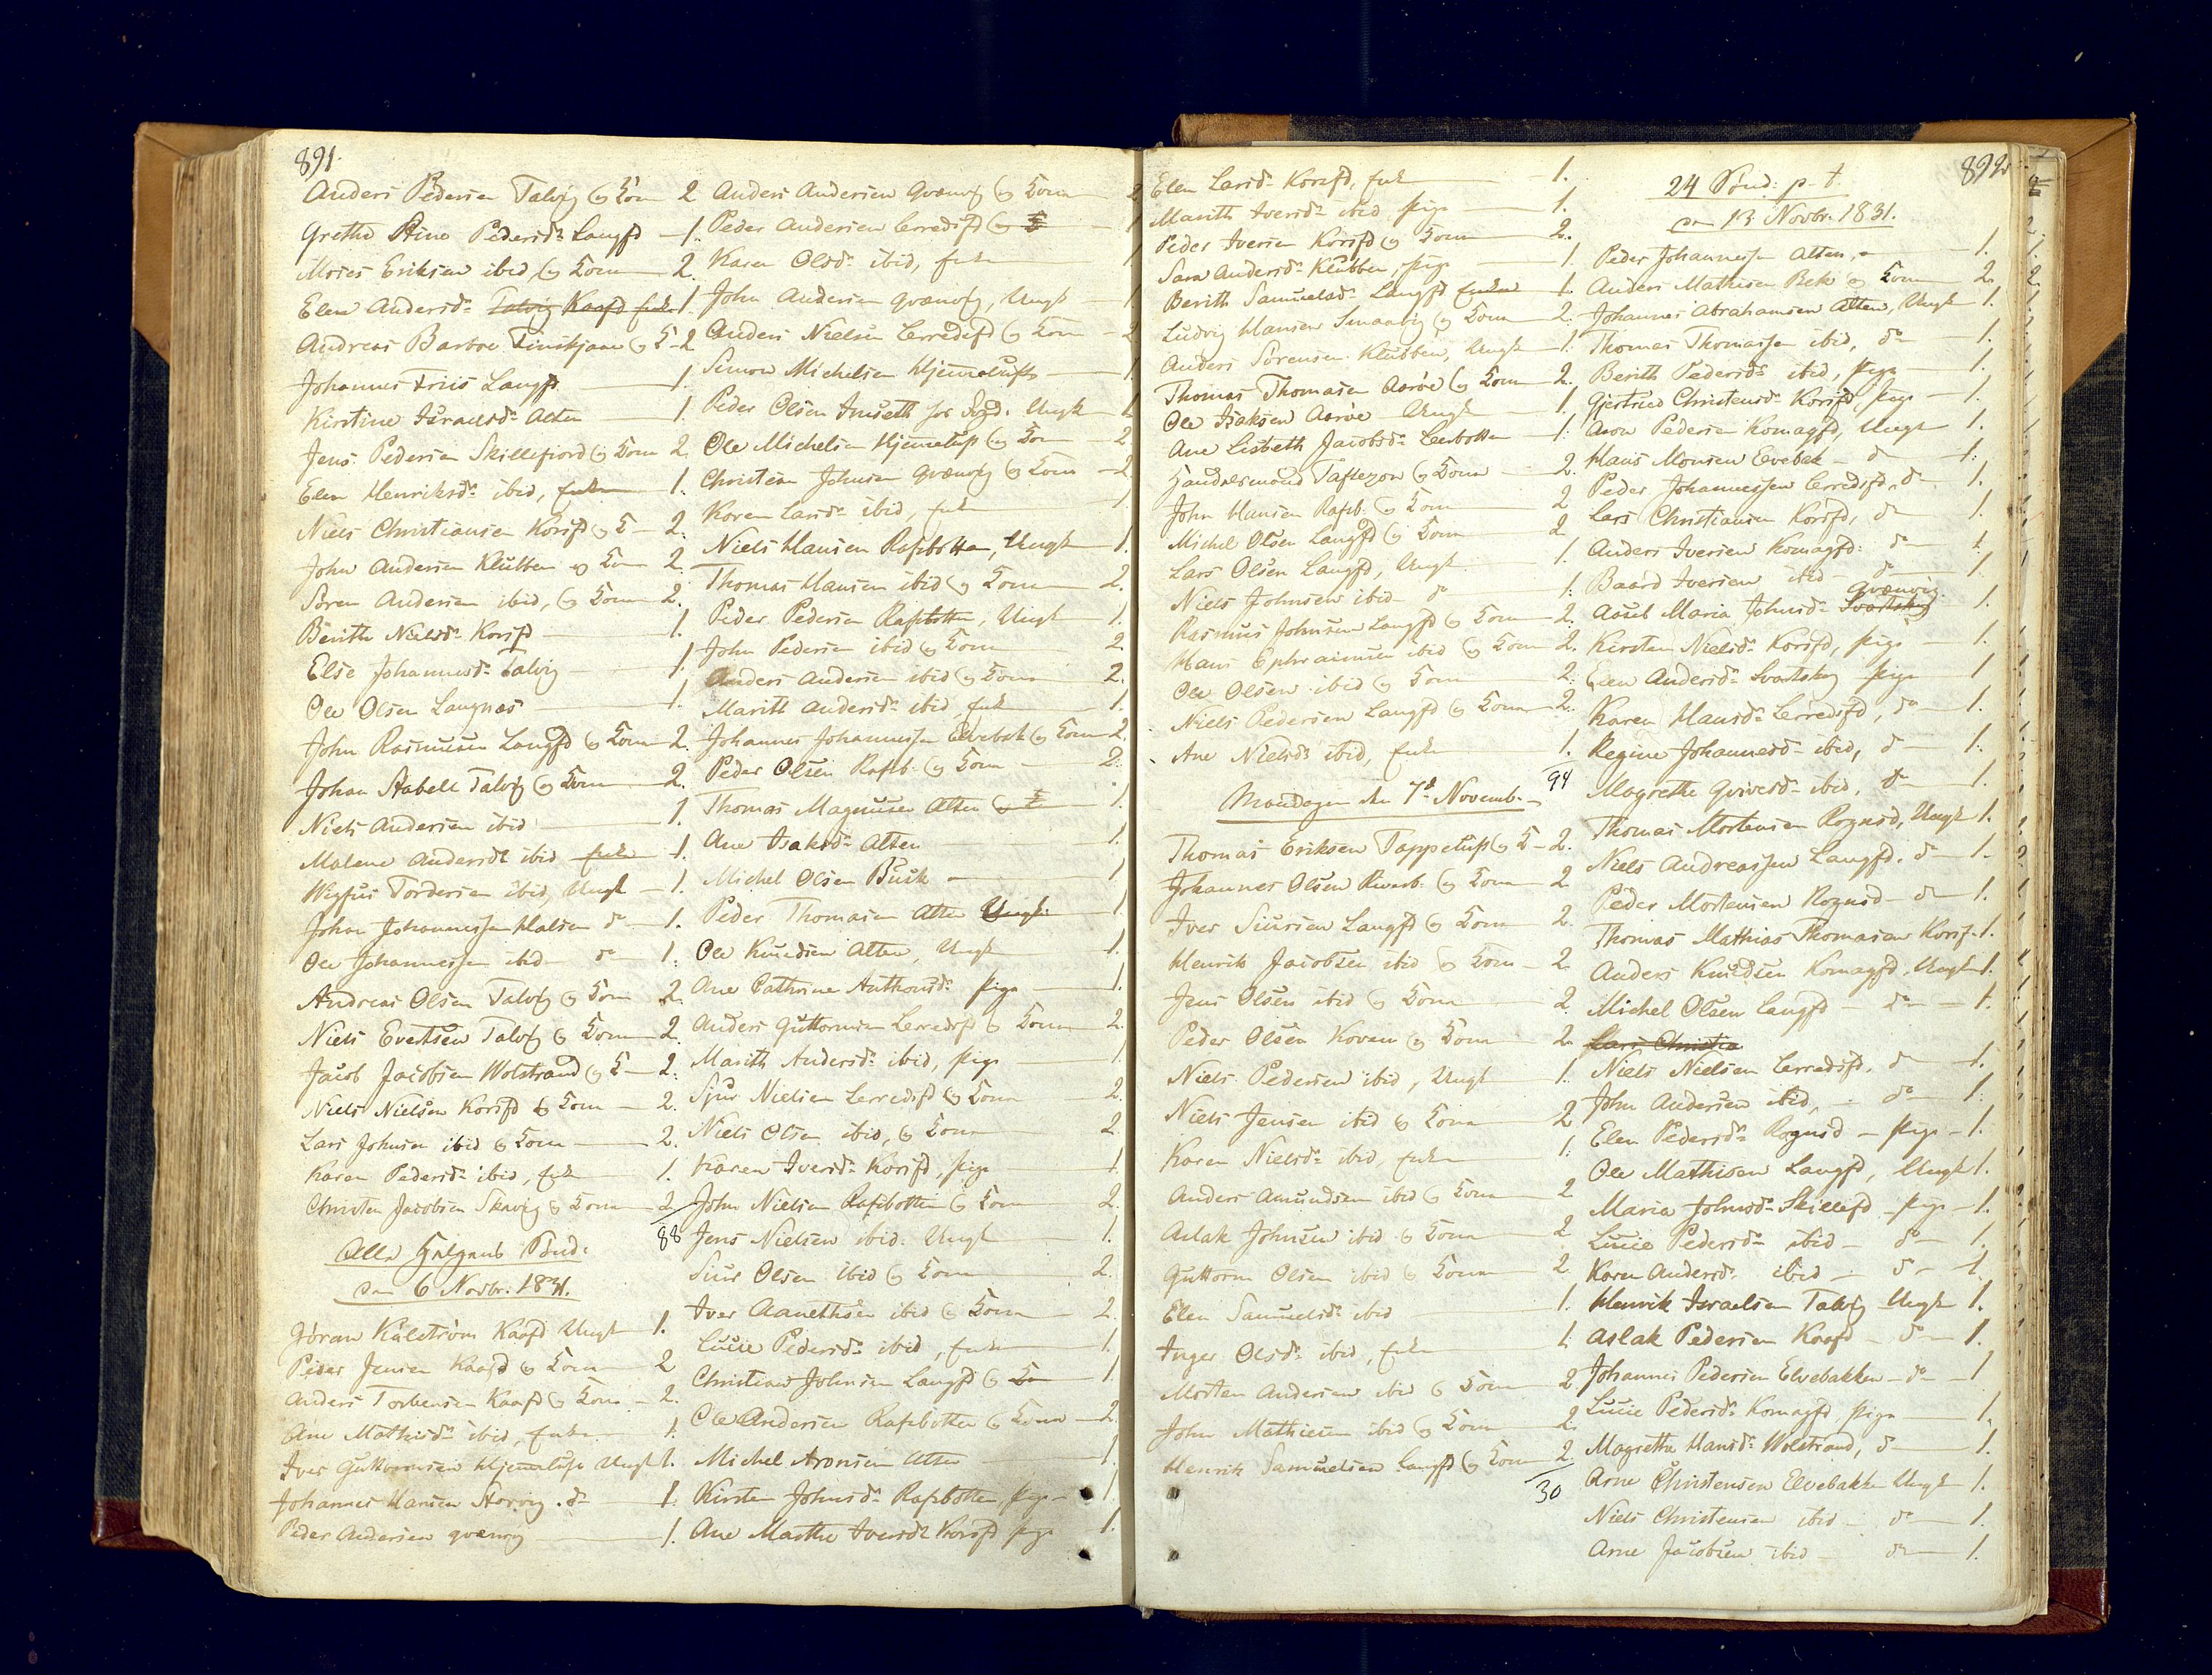 891.
Anders Pedersen Talvig og Kone 2
Grethe Stine Pedersdr Langfd 1.
Moses Eriksen ibid, og Kone 2.
Elen Andersdr Talvig Kaafd Enke 1.
Andreas Barboe Finskjaan og K 2
Johannes Friis Langfd 1.
Kirstine Israelsdr Alten 1.
Jens Pedersen Skillefjord og Kone 2.
Elen Henriksdr ibid, Enke 1.
Niels Christiansen Korsfd og K 2.
John Andersen Klubben og Kone 2.
Søren Andersen ibid, og Kone 2.
Berith Nielsdr Korsfd 1.
Else Johannesdr Talvig 1.
Ole Olsen Langnæs 1.
John Rasmusen Langfd og Kone 2.
Johan Stabell Talvig og Kone 2.
Niels Andersen ibid 1.
Malene Andersdr ibid Enke 1.
Wigfus Tordersen ibid, Ungk 1.
Johan Johannessen Halsen do 1.
Ole Johannessen ibid do 1.
Andreas Olsen Talvig og Kone 2.
Niels Evertsen Talvig og Kone 2.
Jacob Jacobsen Wolstrand og K 2.
Niels Nielsen Korsfd og Kone 2.
Lars Johnsen ibid og Kone 2.
Karen Pedersdr ibid, Enke 1.
Christen Jacobsen Skavig og Kone 2
88
Alle Helgens Sønd:
den 6 Novbr: 1831.
Jöran Kulström Kaafd Ungk 1.
Peder Jensen Kaafd og Kone 2
Anders Torbensen Kaafd og Kone 2.
Ane Mathisdr ibid, Enke 1.
Iver Guttormsen Hjemeluft Ungk 1.
Johannes Hansen Storvig do 1.
Peder Andersen Qvænvig 1.
Anders Andersen Qvænvig og Kone 2
Peder Andersen Lerredsfd og K 1
Karen Olsdr ibid, Enke 1
John Andersen Qvænvig, Ungk 1
Anders Nielsen Lerredsfd og Kone 2
Simon Michelsen Hjemeluft 1
Peder Olsen Ungk 1
Ole Michelsen Hjemeluft og Kone 2
Christian Johnsen Qvænvig og Kone 2
Karen Larsdr ibid, Enke 1
Niels Hansen Rafsbotten, Ungk 1.
Thomas Hansen ibid og Kone 2.
Peder Pedersen Rafsbotten, Ungk 1.
John Pedersen ibid og Kone 2
Anders Andersen ibid og Kone 2.
Marith Andersdr ibid, Enke 1.
Johannes Johannessen Elvebak og Kone 2.
Peder Olsen Rafsb. og Kone 2.
Thomas Magnusen Alten og K 1.
Ane Isaksdr Alten 1.
Michel Olsen Busk 1
Peder Thomasen Alten Ungk 1.
Ole Knudsen Alten, Ungk 1.
Ane Cathrine Anthonsdr Pige 1.
Anders Guttormsen Lerredsfd og Kone 2.
Marith Andersdr ibid, Pige 1
Sjur Nielsen Lerredsfd og Kone 2.
Niels Olsen ibid, og Kone 2
Karen Iversdr Korsfd, Pige 1.
John Nielsen Rafsbotten og Kone 2.
Jens Nielsen ibid. Ungk 1.
Siur Olsen ibid og Kone 2.
Iver Aanethsen ibid og Kone 2.
Lucie Pedersdr ibid, Enke 1.
Christian Johnsen Langfd og Kone 1
Ole Andersen Rafsbotten og Kone 2.
Michel Aronsen Alten 1.
Kirsten Johnsdr Rafsbotten Pige 1
Ane Marthe Iversdr Korsfd Pige 1.
892
Elen Larsdr Korsfd, Enke 1.
Marith Iversdr ibid Pige 1.
Peder Iversen Korsfd og Kone 2.
Sara Andersdr Klubben, Pige 1.
Berith Samuelsdr Langfd Enke 1.
Ludvig Hansen Smaavig og Kone 2.
Anders Sørensen Klubben, Ungk 1.
Thomas Thomasen Aarøe og Kone 2.
Ole Isaksen Aarøe Ungk 1
Ane Lisbeth Jacobsdr Leerbotten 1.
Handelsmand Taftezon og Kone 2.
John Hansen Rafsb. og Kone 2
Michel Olsen Langfd og Kone 2.
Lars Olsen Langfd, Ungk. 1.
Niels Johnsen ibid do 1.
Rasmus Johnsen Langfd og Kone 2.
Hans Ephraimsen ibid og Kone 2.
Ole Olsen ibid og Kone 2.
Niels Pedersen Langfd og Kone 2.
Ane Nielsdr ibid, Enke 1.
94
Mandagen den 7de Novemb.
Thomas Eriksen Tappeluft og K 2.
Johannes Olsen og Kone 2
Iver Siursen Langfd og Kone 2.
Henrik Jacobsen ibid og Kone 2.
Jens Olsen ibid og Kone 2.
Peder Olsen Koven og Kone 2.
Niels Pedersen ibid, Ungk 1.
Niels Jensen ibid og Kone 2
Karen Nielsdr ibid, Enke 1.
Anders Amundsen ibid og Kone 2
Aslak Johnsen ibid og Kone 2
Guttorm Olsen ibid og Kone 2.
Elen Samuelsdr ibid 1.
Inger Olsdr ibid, Enke 1.
Morten Andersen ibid og Kone 2
John Mathisen ibid og Kone 2.
Henrik Samuelsen Langfd og Kone 2.
30
24 Sønd: p. t.
den 13 Novbr. 1831.
Peder Johannessen Alten, 1.
Anders Mathisen Bek og Kone 2.
Johannes Abrahamsen Alten, Ungk 1.
Thomas Thomassen ibid, do 1.
Berith Pedersdr ibid, Pige 1.
Gjertrud Christensdr Korsfd, Pige 1.
Aron Pedersen Komagfd, Ungk 1.
Hans Monsen Elvebak do 1.
Peder Johannessen Lerredsfd, do 1.
Lars Christiansen Korsfd, do 1.
Anders Iversen Komagfd. do 1.
Baard Iversen ibid do 1
Qvænvig.
Aasel Maria Johnsdr Svartskog 1.
Kirsten Nielsdr Korsfd, Pige 1.
Elen Andersdr Svartskog Pige 1
Karen Hansdr Lerredsfd, do 1.
Regine Johannesdr ibid, do 1.
Magrethe ibid, do 1.
Thomas Mortensen Rognsd, Ungk 1.
Niels Andreassen Langfd. do 1.
Peder Mortensen Rognsd do 1.
Thomas Mathias Thomasen Korsf. 1.
Anders Knudsen Komagfd. Ungk 1.
Michel Olsen Langfd do 1.
Lars Christia
Niels Nielsen Lerredsfd, do 1.
John Andersen ibid, do 1.
Elen Pedersdr Rognsd Pige 1.
Ole Mathisen Langfd, Ungk 1.
Maria Johnsdr Skillefd Pige 1.
Lucie Pedersdr ibid do 1.
Karen Andersdr ibid do 1.
Henrik Israelsen Talvig Ungk 1.
Aslak Pedersen Kaafd do 1.
Johannes Pedersen Elvebakken do 1
Lucie Pedersdr Komagfd Pige 1.
Magrethe Hansdr Wolstrand, do 1.
Arne Christensen Elvebakke Ungk 1.
Niels Christensen ibid do 1.
Arne Jacobsen ibid do 1.